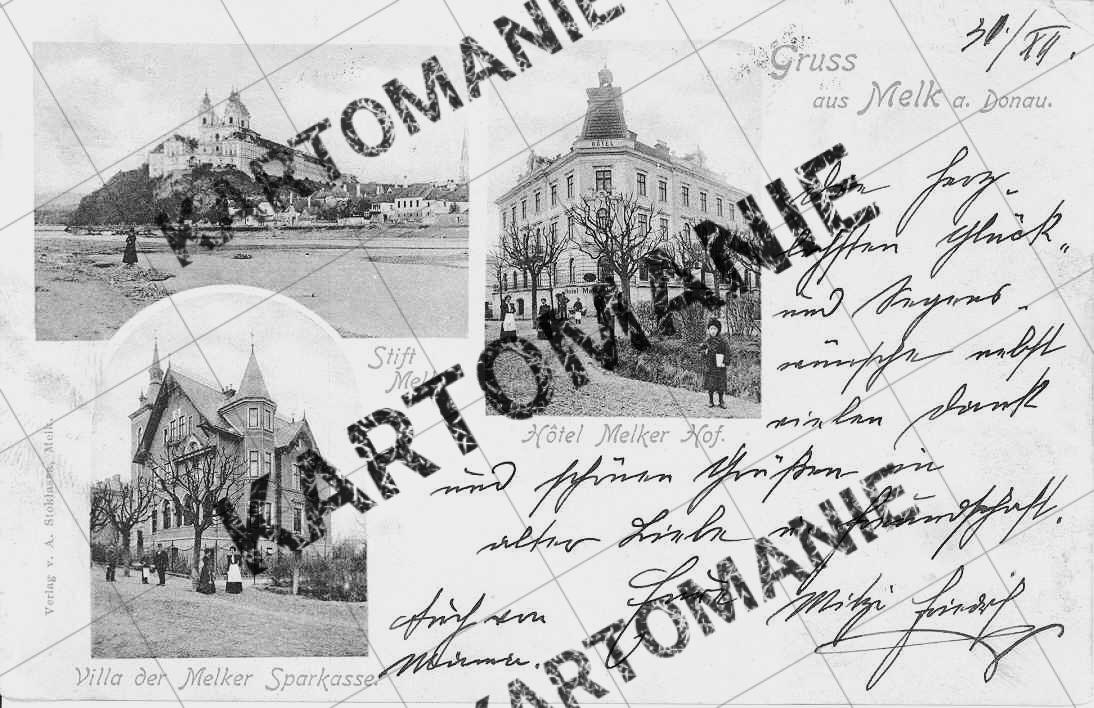 30./XII.
Gruss
aus Melk a. Donau.
Die herz-
lichsten Glück-
und Segens-
wünsche nebst
vielen Dank
und schönen Grüßen in
alter Liebe u. Freundschaft.
Mitzi Friedrich
Auch von
Mama.
Stift
Melk
HÔTEL
Hôtel Melker Hof.
Villa der Melker Sparkasse.
Verlag v. A. Stoklasek, Melk.
KARTOMANIE
KARTOMANIE
KARTOMANIE
KARTOMANIE
KARTOMANIE